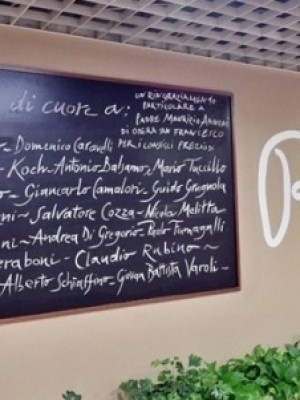 di cuore a:
UN RINGRAZIAMENTO
PARTICOLARE A
PADRE MAURIZIO
DI OPERA SAN FRANCESCO
PER I CONSIGLI PREZIOSI
- Domenico Caravelli
- Koch - Antonio Balsamo - Mario Tuccillo
- Giancarlo Camolori - Guido Grugnola
ni - Salvatore Cozza - Nicola Melitta
ni - Andrea Di Gregorio - Paolo Fumagalli
eraboni - Claudio Rubino ~
Alberto Schiaffino - Giovan Battista Varoli -